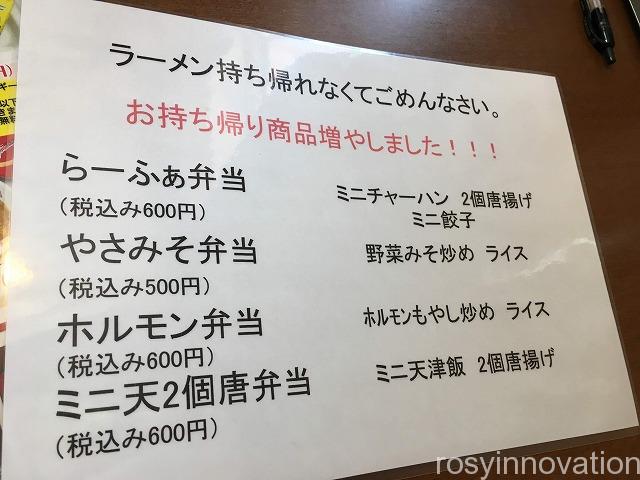 ラーメン持ち帰れなくてごめんなさい。
お持ち帰り商品増やしました！！！
らーふぁ弁当
(税込み600円)
ミニチャーハン 2個唐揚げ
ミニ餃子
やさみそ弁当
(税込み500円)
野菜みそ炒め ライス
ホルモン弁当
(税込み600円)
ホルモンもやし炒め ライス
ミニ天2個唐弁当
(税込み600円)
ミニ天津飯 2個唐揚げ
rosyinnovation